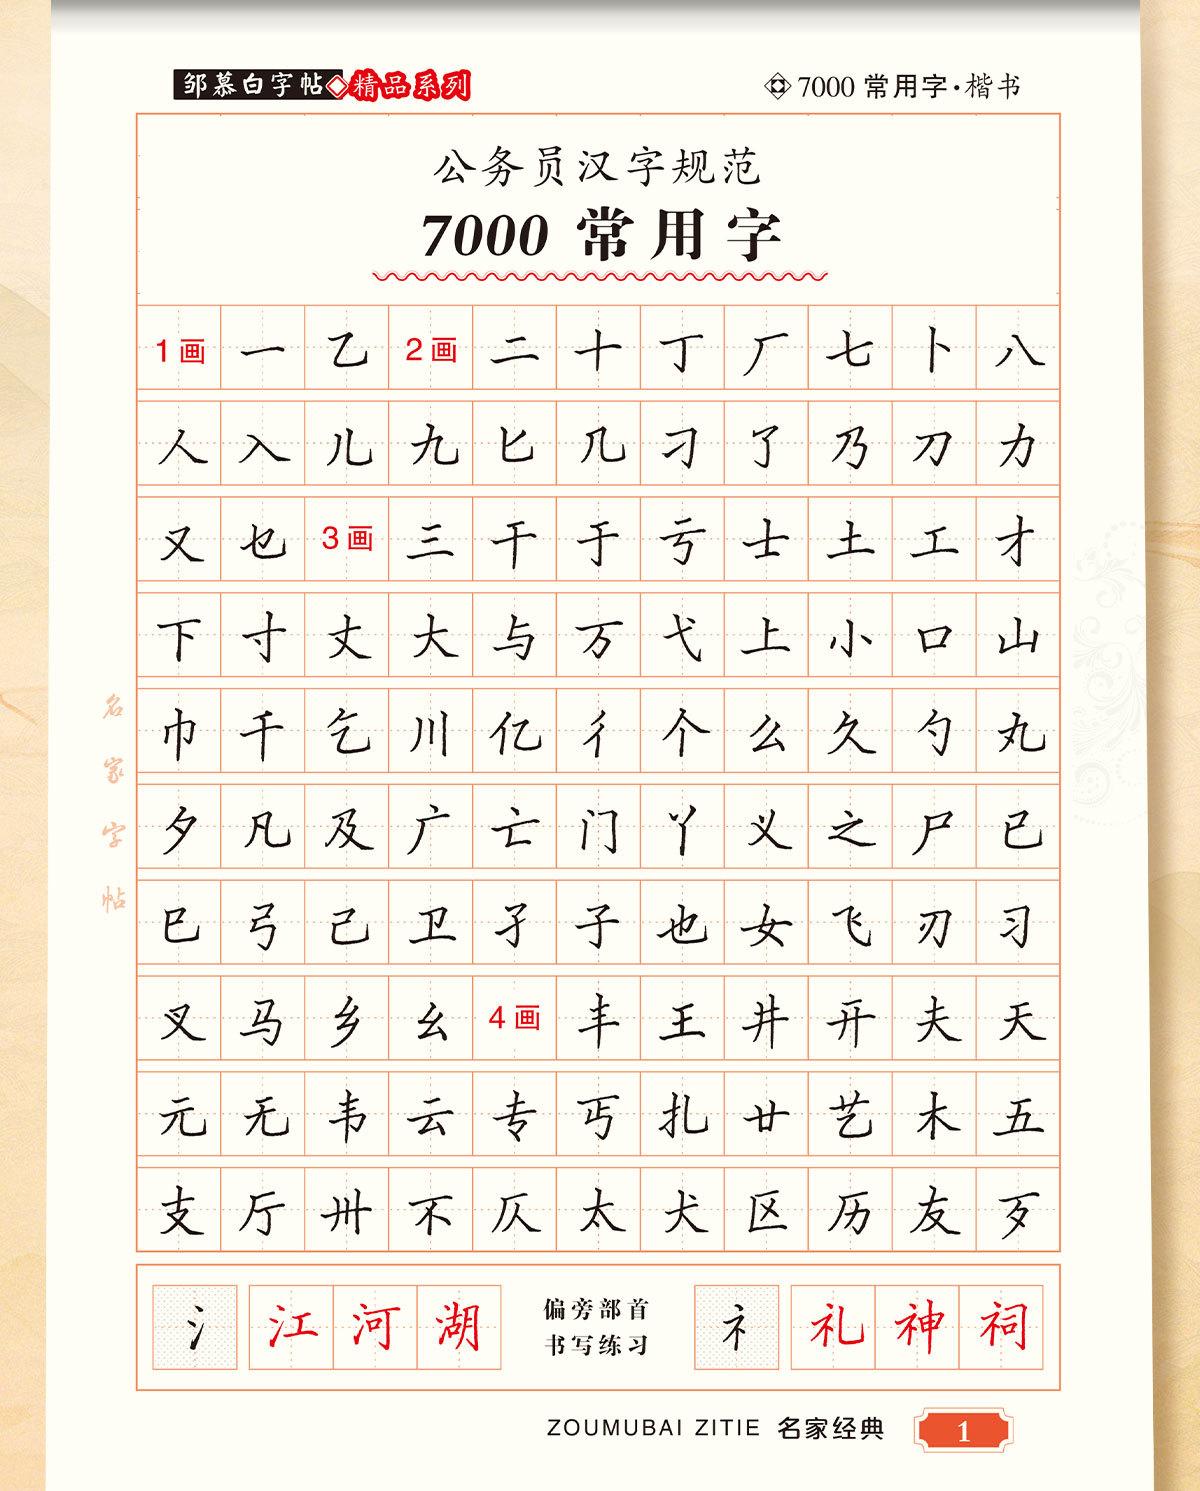 邹慕白字帖 精品系列
7000 常用字·楷书
公务员汉字规范
7000 常用字
1画 一 乙 2画 二 十 丁 厂 七 卜 八
人 入 儿 九 匕 几 刁 了 乃 刀 力
又 乜 3画 三 干 于 亏 士 土 工 才
下 寸 丈 大 与 万 弋 上 小 口 山
巾 千 乞 川 亿 彳 个 么 久 勺 丸
夕 凡 及 广 亡 门 丫 义 之 尸 已
巳 弓 己 卫 孑 子 也 女 飞 刃 习
叉 马 乡 幺 4画 丰 王 井 开 夫 天
元 无 韦 云 专 丐 扎 廿 艺 木 五
支 厅 卅 不 仄 太 犬 区 历 友 歹
名家字帖
氵 江 河 湖
偏旁部首
书写练习
礻 礼 神 祠
ZOUMUBAI ZITIE 名家经典
1